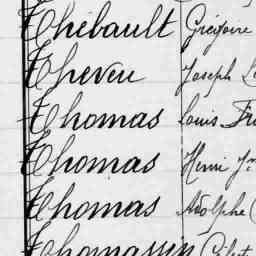 Thébault Grégoire
Theveu Joseph
Thomas Louis
Thomas Henri
Thomas Adolphe
Thomassin